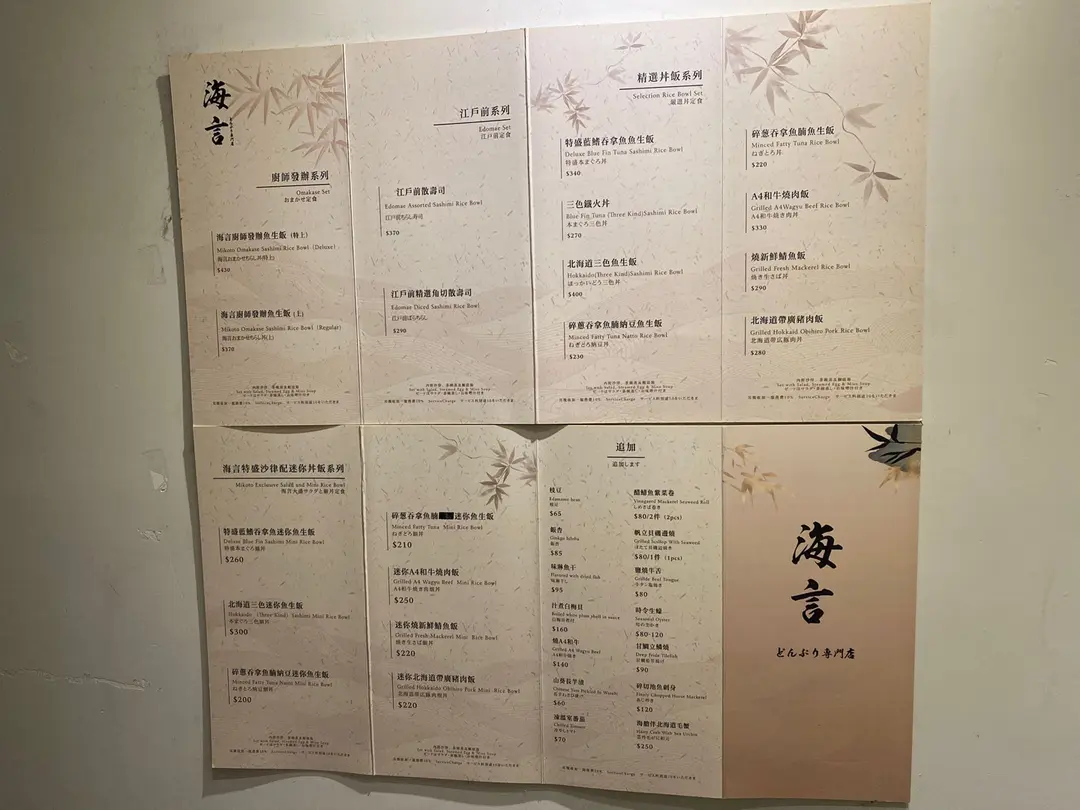 海言
廚師發辦系列
Omakase Set
おまかせ定食
海言廚師發辦魚生飯（特上）
Mikoto Omakase Sashimi Rice Bowl（Deluxe）
海言おまかせちらし丼(特上)
$430
海言廚師發辦魚生飯（上）
Mikoto Omakase Sashimi Rice Bowl（Regular）
海言おまかせちらし丼(上)
$370
江戶前系列
Edomae Set
江戸前定食
江戶前散壽司
Edomae Assorted Sashimi Rice Bowl
江戸前ちらし寿司
$370
江戶前精選角切散壽司
Edomae Diced Sashimi Rice Bowl
江戸前ばらちらし
$290
精選丼飯系列
Selection Rice Bowl Set
厳選丼定食
特盛藍鰭吞拿魚魚生飯
Deluxe Blue Fin Tuna Sashimi Rice Bowl
特盛本まぐろ丼
$340
三色鐵火丼
Blue Fin Tuna (Three Kind)Sashimi Rice Bowl
本まぐろ三色丼
$270
北海道三色魚生飯
Hokkaido(Three Kind)Sashimi Rice Bowl
ほっかいどう三色丼
$400
碎蔥吞拿魚腩納豆魚生飯
Minced Fatty Tuna Natto Rice Bowl
ねぎとろ納豆丼
$230
碎蔥吞拿魚腩魚生飯
Minced Fatty Tuna Rice Bowl
ねぎとろ丼
$220
A4和牛燒肉飯
Grilled A4Wagyu Beef Rice Bowl
A4和牛焼き肉丼
$330
燒新鮮鯖魚飯
Grilled Fresh Mackerel Rice Bowl
焼き生さば丼
$290
北海道帶廣豬肉飯
Grilled Hokkaid Obihiro Pork Rice Bowl
北海道帯広豚肉丼
$280
Set with Salad, Steamed Egg & Miso Soup
海言特盛沙律配迷你丼飯系列
Mikoto Exclusive Salad and Mini Rice Bowl
海言大盛サラダと細丼定食
特盛藍鰭吞拿魚迷你魚生飯
Deluxe Blue Fin Sashimi Mini Rice Bowl
特盛本まぐろ細丼
$260
北海道三色迷你魚生飯
Hokkaido （Three Kind） Sashimi Mini Rice Bowl
本まぐろ三色細丼
$300
碎蔥吞拿魚腩納豆迷你魚生飯
Minced Fatty Tuna Natto Mini Rice Bowl
ねぎとろ納豆細丼
$200
碎蔥吞拿魚腩 迷你魚生飯
Minced Fatty Tuna Mini Rice Bowl
ねぎとろ細丼
$210
迷你A4和牛燒肉飯
Grilled A4 Wagyu Beef Mini Rice Bowl
$250
迷你燒新鮮鯖魚飯
Grilled Fresh Mackerel Mini Rice Bowl
焼き生さば細丼
$220
迷你北海道帶廣豬肉飯
Grilled Hokkaido Obihiro Pork Mini Rice Bowl
$220
追加
追加します
枝豆
Edamame bean
枝豆
$65
銀杏
Ginkgo biloba
銀杏
$85
味淋魚干
Flavored with dried fish
味淋干し
$95
汁煮白梅貝
$160
燒A4和牛
Grilled A4 Wagyu Beef
$140
$60
凍溫室番茄
Chilled Tomato
$70
醋鯖魚紫菜卷
Vinegared Mackerel Seaweed Roll
しめさば巻き
$80/2件 (2pcs)
帆立貝磯邊燒
Grilled Scallop With Seaweed
$80/1件 (1pcs)
鹽燒牛舌
$80
時令生蠔
Seasonal Oyster
$80-120
甘鯛立鱗燒
$90
碎切池魚刺身
$120
海膽伴北海道毛蟹
$250
海言
どんぶり専門店